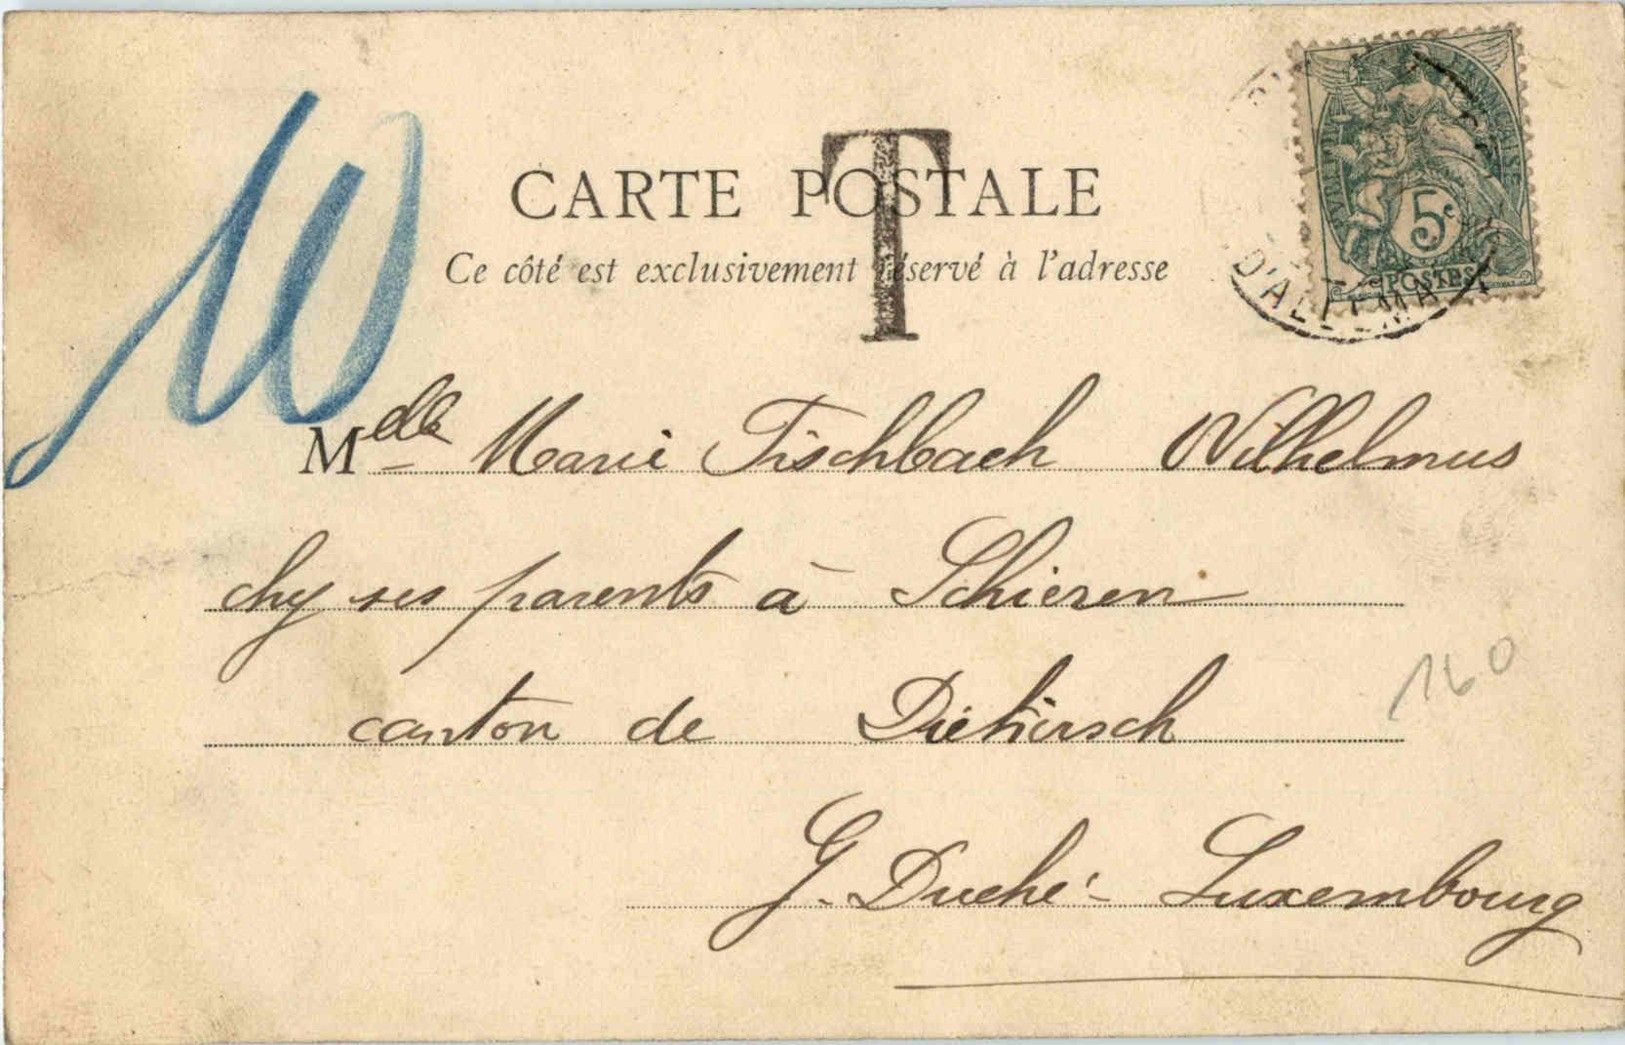 10
CARTE POSTALE
T
Ce côté est exclusivement réservé à l'adresse
5c
POSTES
D'ALLEMA
Mdelle Marie Fischbach Wilhelmus
chez ses parents à Schieren
canton de Diekirsch
160
G. Duché - Luxembourg